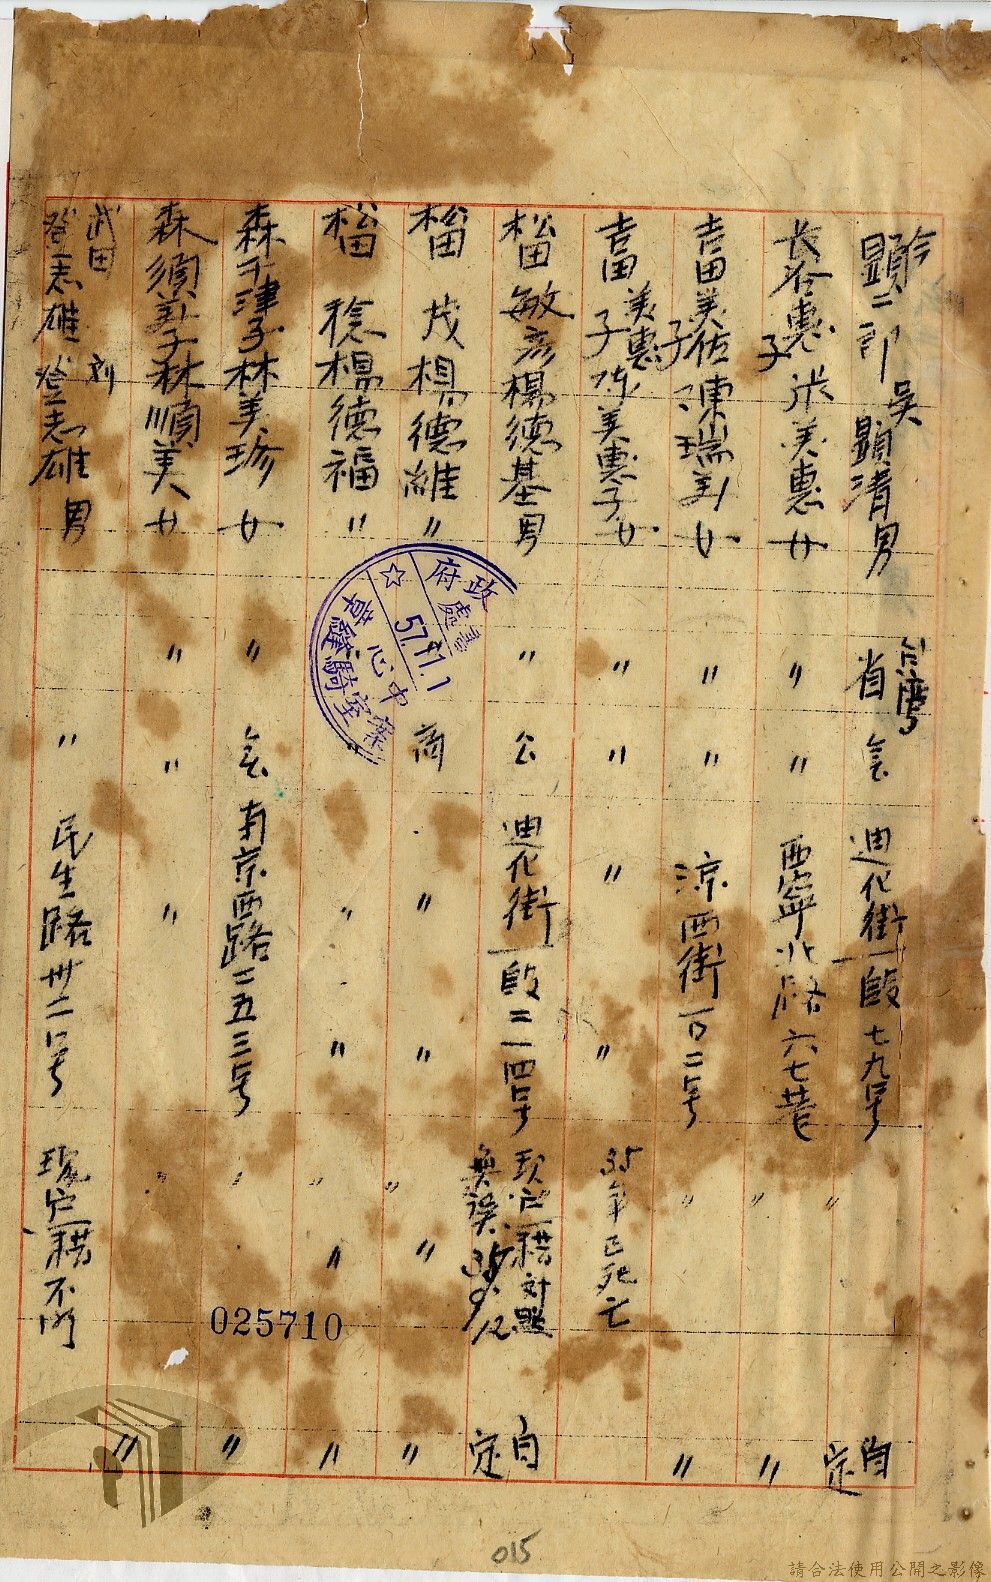 顕二郎 吳顕清 男 台灣省 迪化街一段七九号 〃 自定
長谷惠子 美惠 女 〃 〃 西寧北路六七巷 〃 〃
吉田美佐子 陳瑞 女 〃 〃 涼西街一〇二号 〃 〃
吉田美惠子 陳美惠子 女 〃 〃 〃 〃 35年已死亡
松田敏彥 楊德基 男 〃 公 迪化街一段二一四号 現戶籍对照無誤 35.9.12 自定
松田茂 楊德維 〃 商 〃 〃 〃 〃 〃
松田稔 楊德福 〃 〃 〃 〃 〃 〃 〃
森津子 林美珍 女 〃 南京西路二五三号 〃 〃
森須美子 林順美 女 〃 〃 〃 〃 〃
武田登志雄 刘登志雄 男 〃 民生路卅二号 現戶籍不明
政府
中心
室騎縫章
57.11.1
025710
015
請合法使用公開之影像